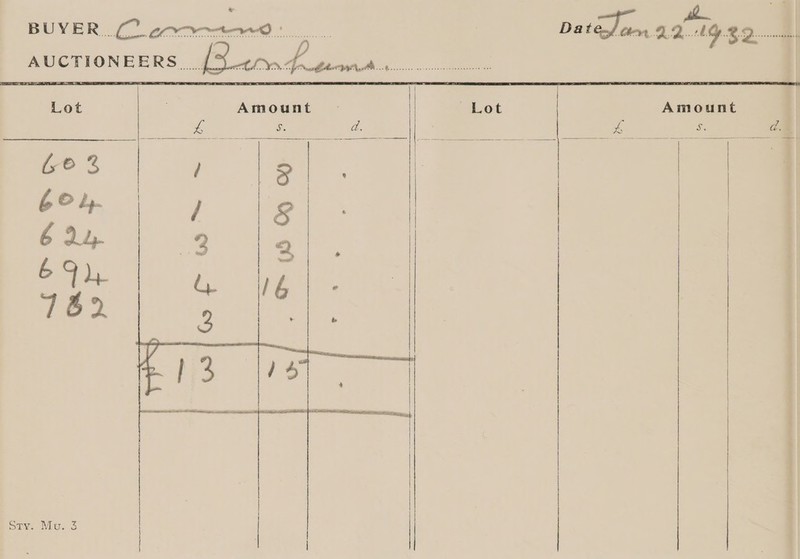 BUYER Comino. Date Jan 22nd 1932
AUCTIONEERS Bonhams.
Lot Amount Lot Amount
£ s. d. £ s. d.
603 1 8 .
604 1 8 .
624 3 3 .
694 4 16 .
782 3 . .
£13 15 .
STY. MU. 3